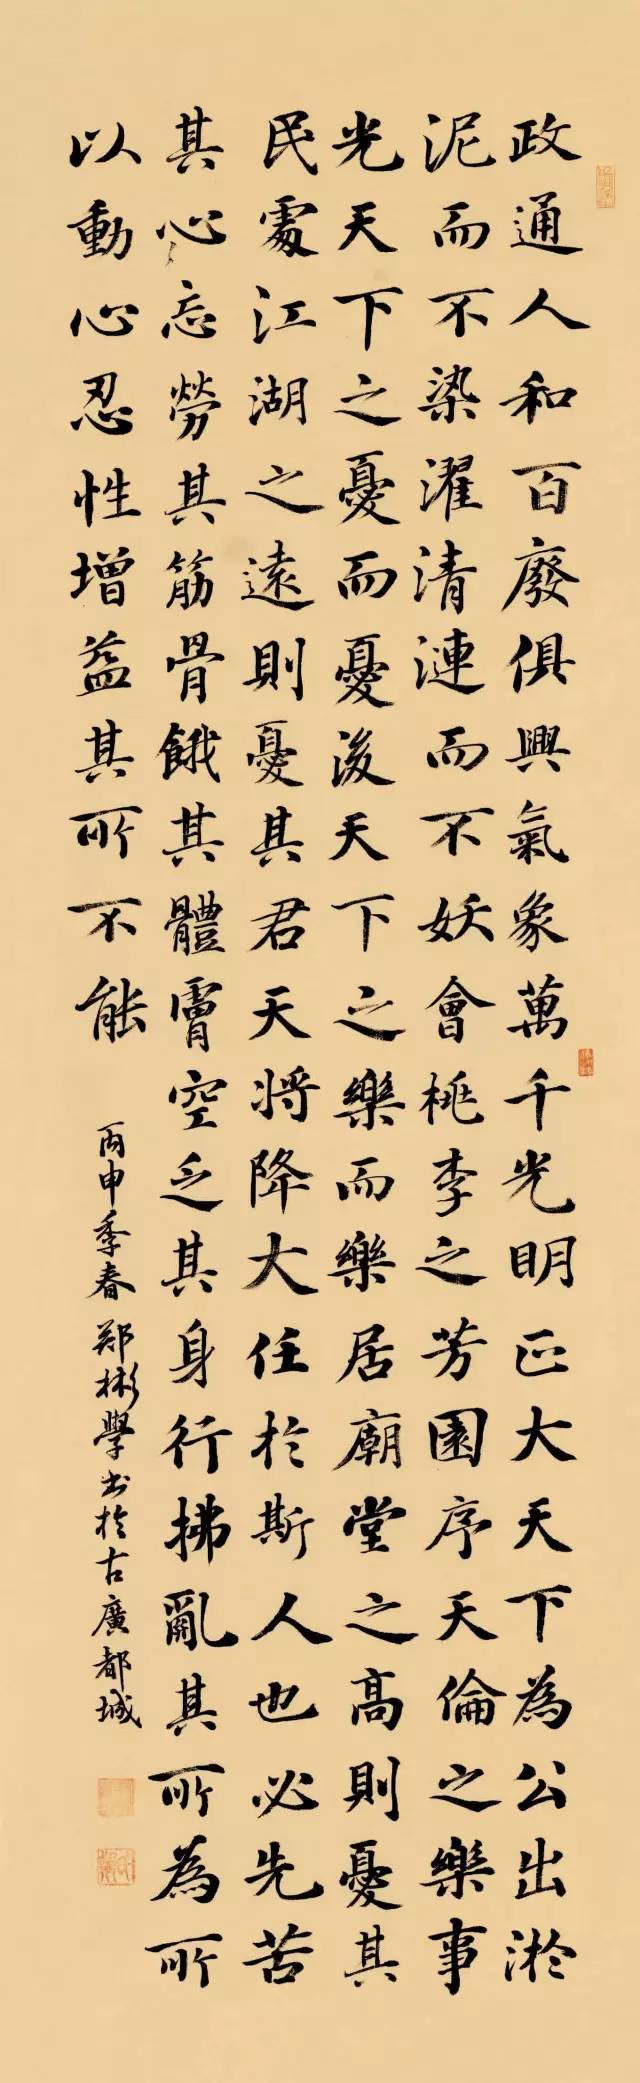 政通人和百廢俱興氣象萬千光明正大天下為公出淤
泥而不染濯清漣而不妖會桃李之芳園序天倫之樂事
光天下之憂而憂後天下之樂而樂居廟堂之高則憂其
民處江湖之遠則憂其君天將降大任於斯人也必先苦
其心忘勞其筋骨餓其體膚空乏其身行拂亂其所為所
以動心忍性增益其所不能
丙申季春郑彬學书於古廣都城